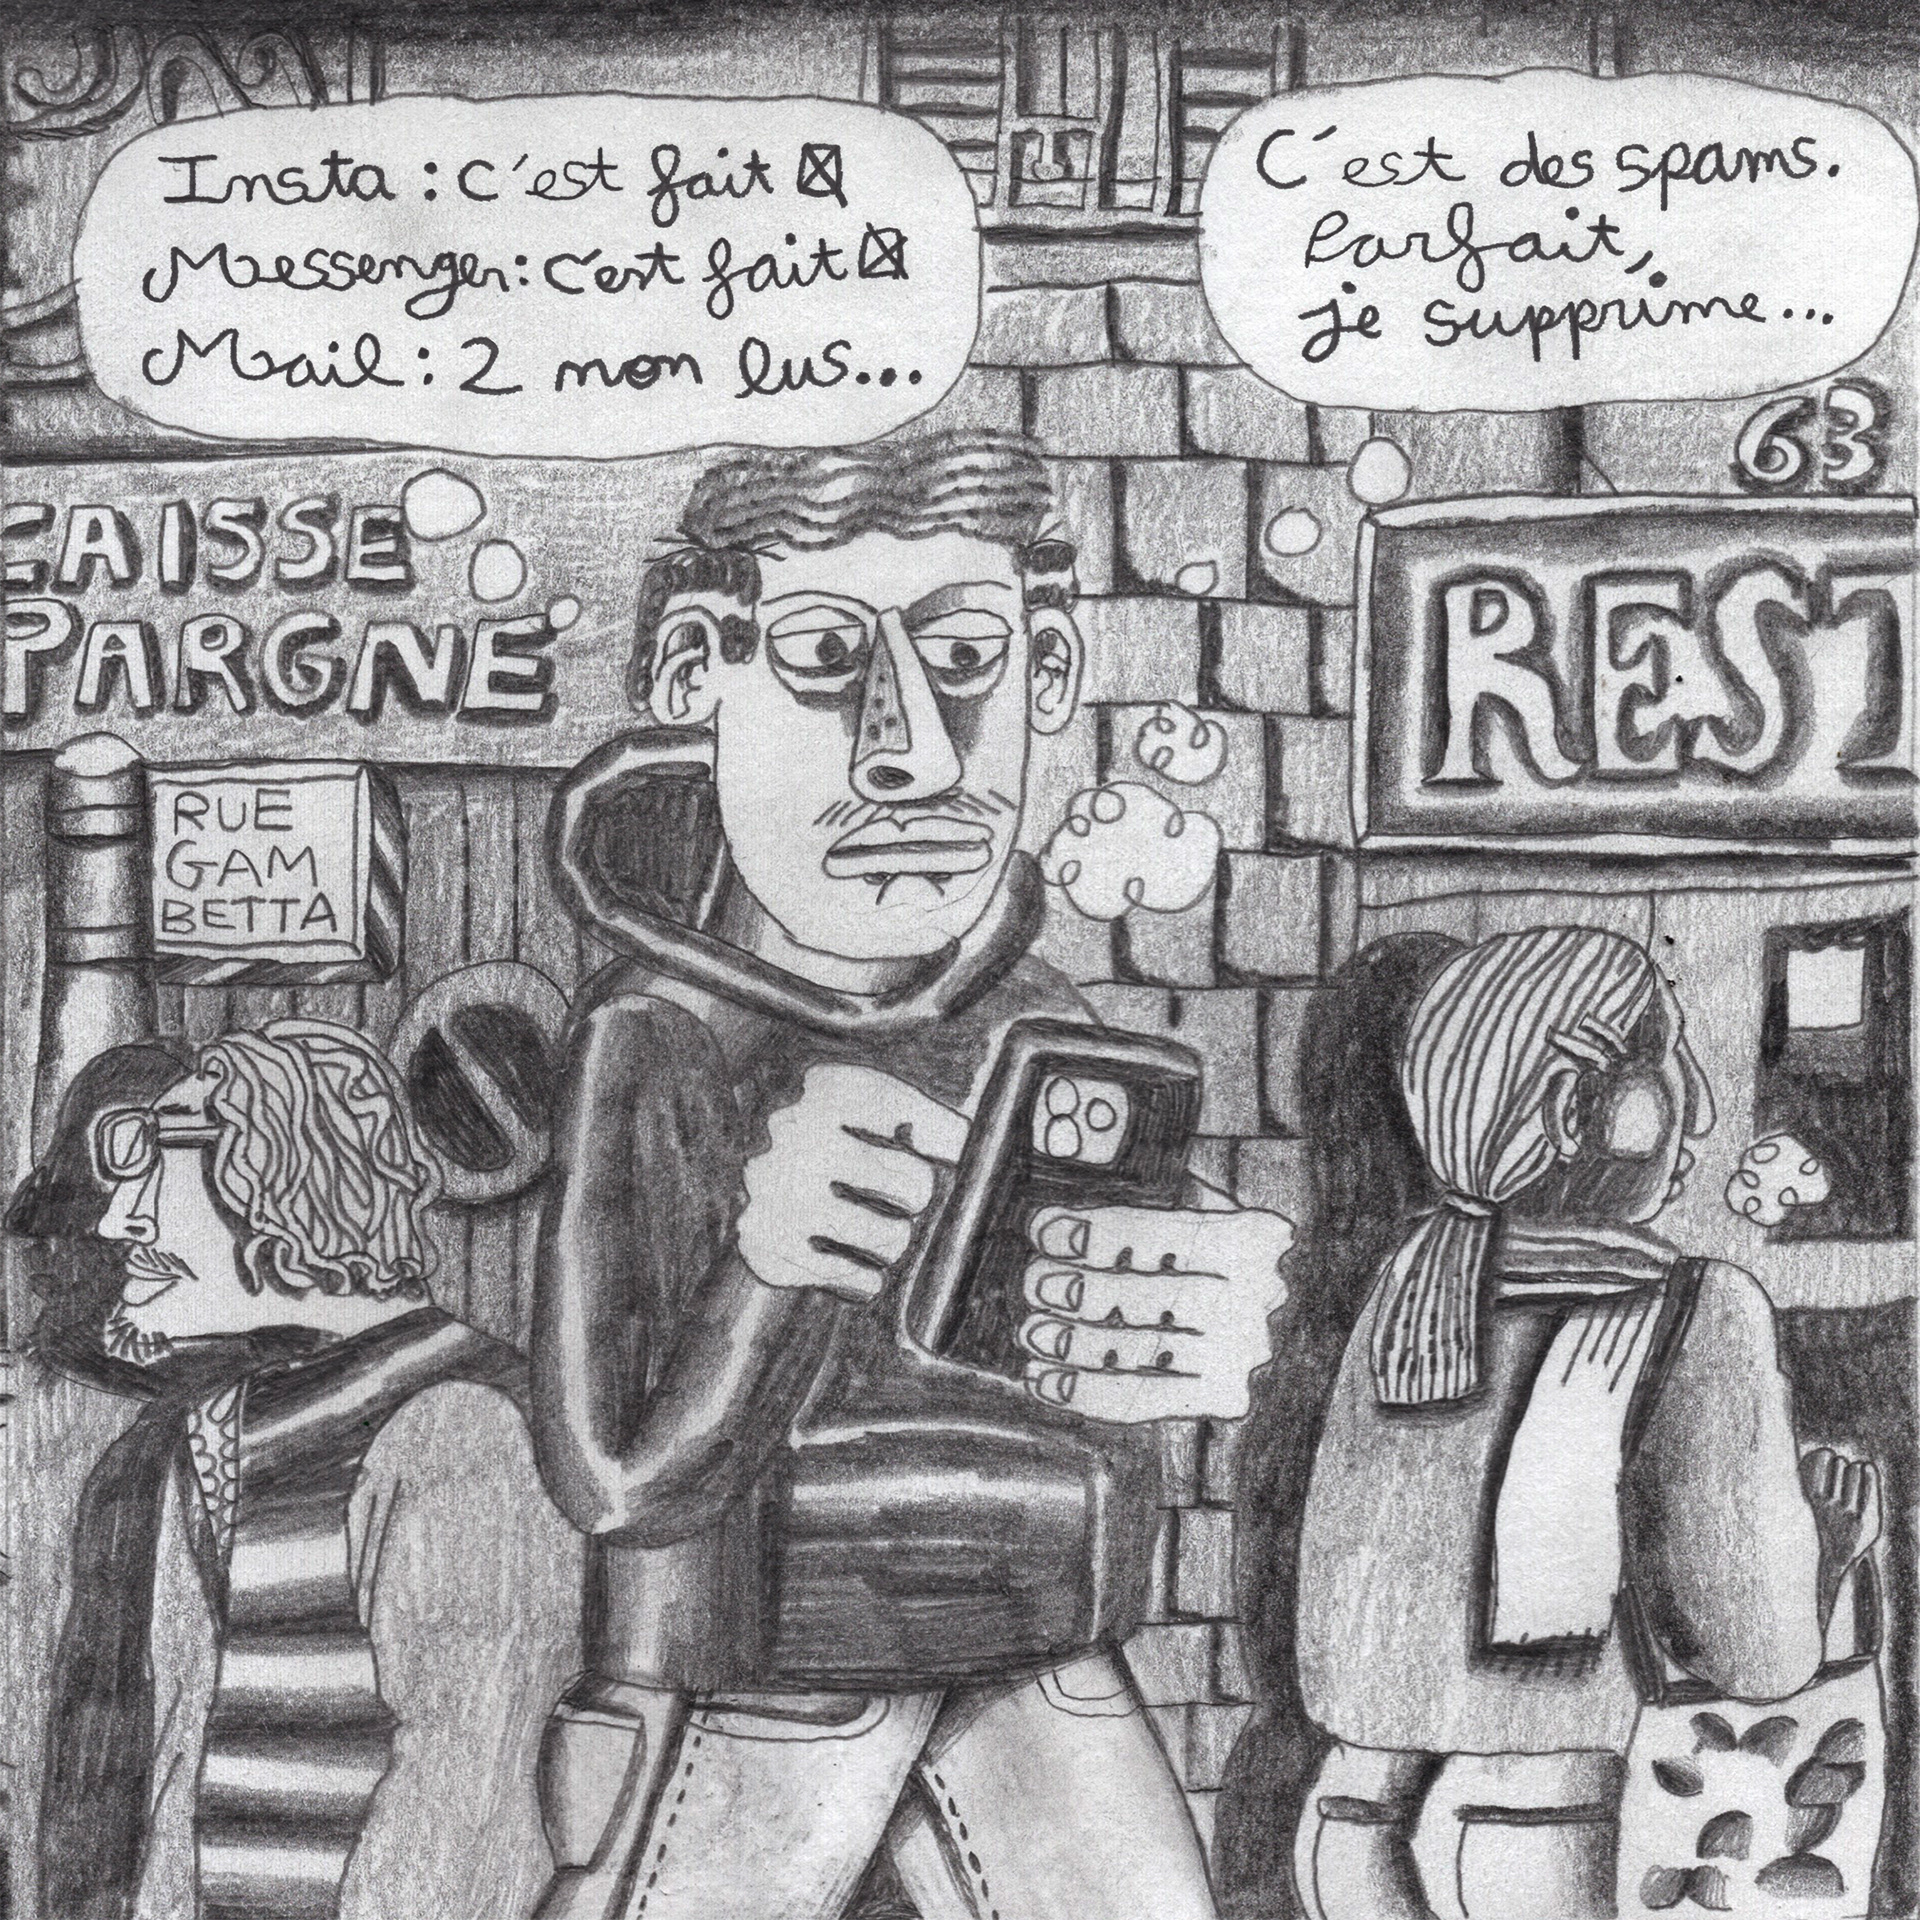 Insta : c'est fait ☒
Messenger : c'est fait ☒
Mail : 2 non lus...
C'est des spams.
Parfait,
je supprime...
63
CAISSE
PARGNE
REST
RUE
GAM
BETTA